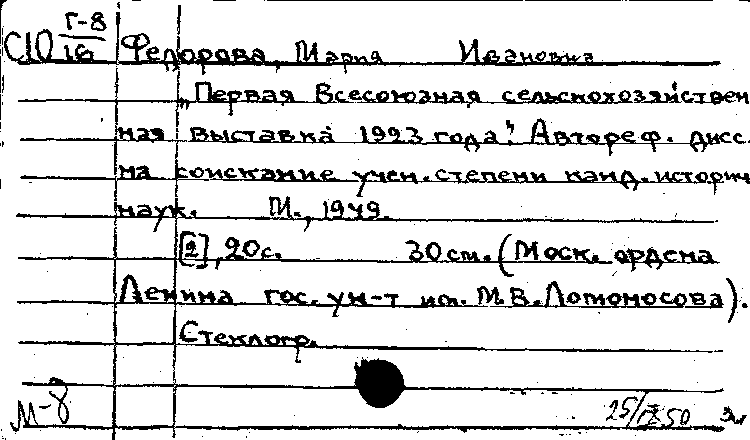 Г-8
С10/16 Федорова, Мария Ивановна
„Первая Всесоюзная сельскохозяйствен
ная выставка 1923 года". Автореф. дисс.
на соискание учен. степени канд. историч
наук. М., 1949.
[2], 20 с. 30 см. (Моск. ордена
Ленина гос. ун-т им. М.В. Ломоносова).
Стеклогр.
М-8 25/IX 50